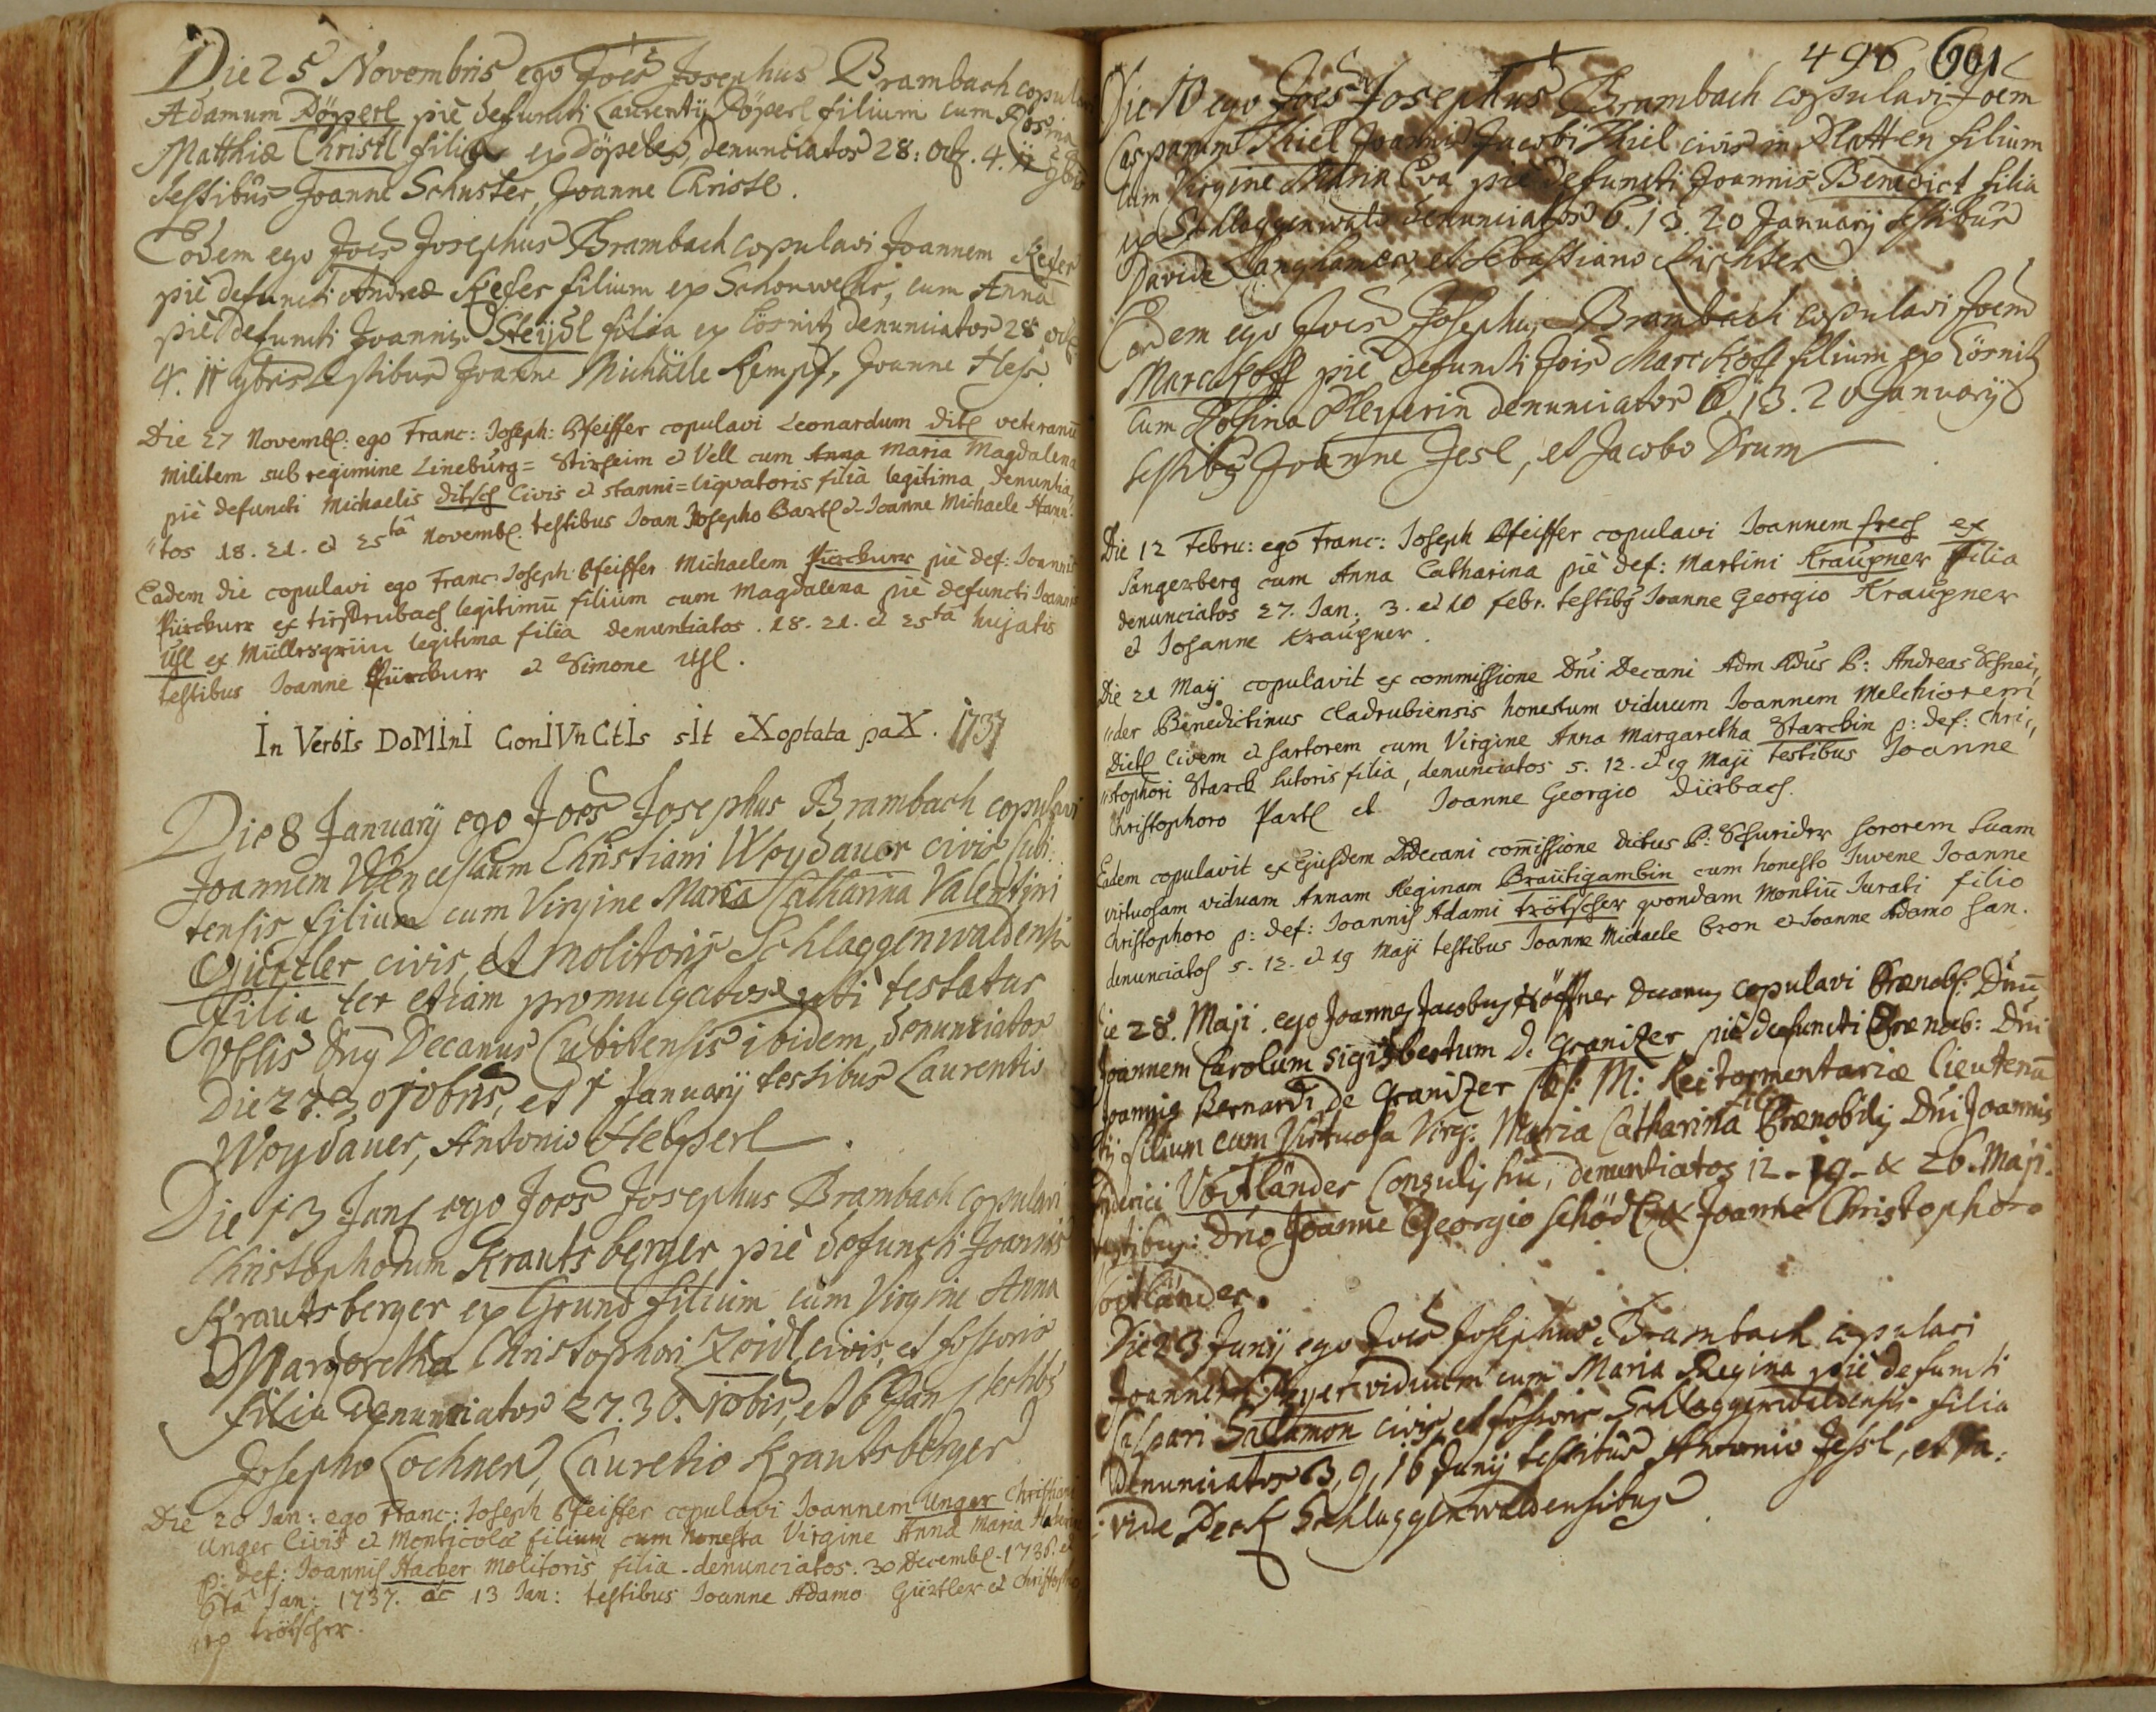 Die 25 Novembris ego Joes Josephus Brambach copulavi
Adamum Döperl piè defuncti Laurentij Döperl filium cum Rosina
Matthiæ Christl filia ex Döpeles, denunciatos 28: Oct. 4. 11 9bris
testibus Joanne Schuster, Joanne Christl.
Eodem ego Joes Josephus Brambach copulavi Joannem Kefer
piè defuncti Andreæ Kefer filium ex Schonwehr, cum Anna
piè defuncti Joannis Steijdl filia ex Lösnitz denunciatos 28 Oct
4. 11 9bris testibus Joanne Michäele Kempf, Joanne Hess.
Die 27 Novemb: ego Franc: Joseph: Pfeiffer copulavi Leonardum Ditl veteranū
militem sub regimine Lineburg= Stirheim et Vell cum Anna Maria Magdalena
piè defuncti Michaelis Ditsch Civis et stanni=liquatoris filia legitima denuntia,
"tos 18. 21. et 25tâ Novemb. testibus Joan Josepho Bartl et Joanne Michaele
Eadem die copulavi ego Franc: Joseph: Pfeiffer Michaelem Pürckurr piè def: Joannis
Pürckurr ex tirstrubach legitimū filium cum Magdalena piè defuncti Joannis
Uhl ex Müllrsgrün legitima filia denuntiatos. 18. 21. et 25tâ hujatis
testibus Joanne Pürckurr et Simone Uhl.
In VerbIs DoMInI ConIVnCtIs sIt eXoptata paX. 1737
Die 8 Januarij ego Joes Josephus Brambach copulavi
Joannem Wenceslaum Christiani Woydauer civis Cubi-
tensis filium cum Virgine Maria Catharina Valentini
Gürtler civis, et Molitoris Schlaggenwaldensis
filia ter etiam promulgatos, uti testatur
Dnus Decanus Cubitensis ibidem, denunciatos
Die 27. 30 Xbris, et 1 Januarij testibus Laurentio
Woydauer, Antonio Helperl.
Die 13 Jan ego Joes Josephus Brambach copulavi
Christophorum Krautsberger piè defuncti Joannis
Krautsberger ex Grund filium cum Virgine Anna
Margaretha Christophori Zeidl civis, et fossoris
filia Denunciatos 27. 30. Xbris, et 6 Jan testibus
Josepho Lochner, Lauretio Krautsberger
Die 20 Jan: ego Franc: Joseph Pfeiffer copulavi Joannem Unger Christiani
Unger Civis et Monticolæ filium cum honesta Virgine Anna Maria
p: def: Joannis Hacker Molitoris filia denunciatos. 30 Decemb. 1736. et
6tâ Jan: 1737. ac 13 Jan: testibus Joanne Adamo Gürtler et Christopho
ro trötscher.
496 601
Die 10 ego Joes Josephus Brambach copulavi Joem
Casparum Thiel Joannis Jacobi Thiel civis in Platten filium
cum Virgine Maria Eva piè defuncti Joannis Benedict filia
ex Schlaggenwald denunciatos 6. 13. 20 Januarij testibus
Davide Langhamer, et Sebastiano Richter
Eodem ego Joes Josephus Brambach copulavi Joem
Marckoff piè defuncti Jois Marckoff filium ex Lösnitz
cum Rosina Pleyerin denunciatos 6. 13. 20 Januarij
testibus Joanne Jesl, et Jacobo Drum
Die 12 Febru: ego Franc: Joseph Pfeiffer copulavi Joannem frech ex
Sangerberg cum Anna Catharina piè def: Martini Kraupner filia
denunciatos 27. Jan: 3. et 10 febr. testibus Joanne Georgio Kraupner
et Johanne Kraupner.
Die 21 Maij copulavit ex commissione Dni Decani Adm Rdus P: Andreas Schnei,,
"der Benedictinus Cladrubiensis honestum viduum Joannem Melchiorem
Dietl Civem et sartorem cum Virgine Anna Margaretha Starckin p: def: Chri,,
"stophori Starck sutoris filia, denunciatos 5. 12. et 19 Maji testibus Joanne
Christophoro Partl et Joanne Georgio Dürbach.
Eadem copulavit ex Ejusdem Ddecani comissione dictus P: Schneider sororem suam
virtuosam viduam Annam Reginam Braütigambin cum honesto Juvene Joanne
Christophoro p: def: Joannis Adami trötscher quondam Montiū Jurati filio
denunciatos 5. 12. et 19 Maji testibus Joanne Michaele Cron et Joanne Adamo Han.
Die 28. Maji. ego Joannes Jacobus Höffner Decanus copulavi Prænob: Dnū
Joannem Carolum Sigisbertum D. Granizer piè defuncti Prænob: Dni
Joannis Bernardi de Granizer S: M: Rei tormentariæ lieutenā
tij filium cum Virtuosa Virg: Maria Catharina filia Prænobilis Dni Joannis
Friderici Voitländer Consulis hu, denuntiatos 12. 19. & 26. Maji.
testibus: Dno Joanne Georgio Schödl & Joanne Christophoro
Voitländer.
Die 23 Junij ego Joes Josephus Brambach copulavi
Joannem Peyer viduum cum Maria Regina piè defuncti
Caspari Salamon civis, et fossoris Schlaggenwaldensis filia
Denunciatos 3, 9, 16 Junij testibus Antonio Jessl, et Da:
:vide Peck Schlaggenwaldensibus